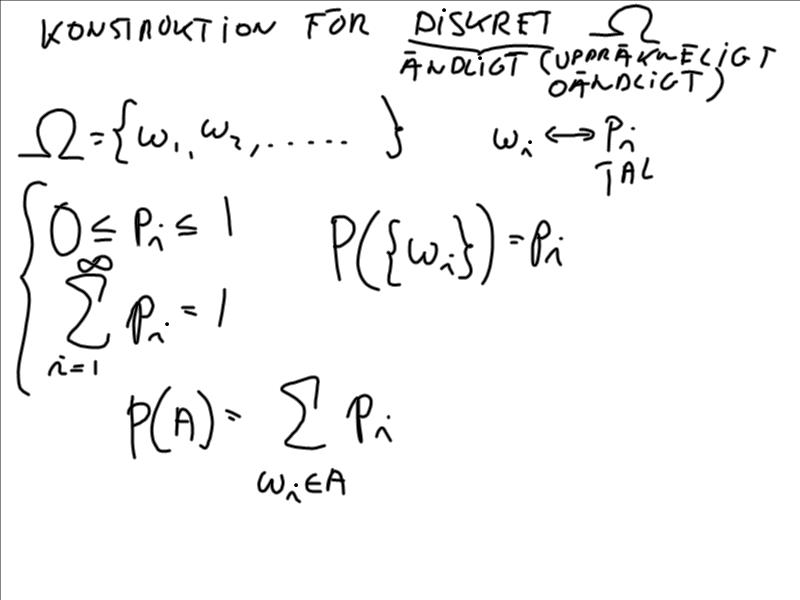 KONSTRUKTION FÖR DISKRET Ω
ÄNDLIGT (UPPRÄKNELIGT
OÄNDLIGT)
Ω = {ω₁, ω₂, ...... } ωᵢ ↔ pᵢ
TAL
0 ≤ pᵢ ≤ 1 P({ωᵢ}) = pᵢ
∞
∑ pᵢ = 1
i=1
P(A) = ∑ pᵢ
ωᵢ∈A